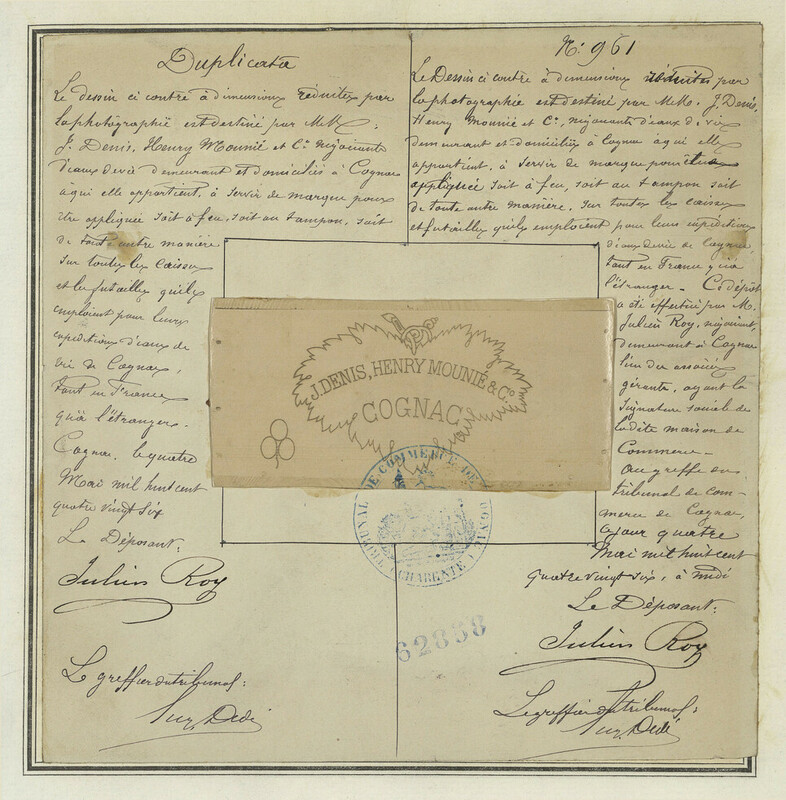 Duplicata
Le dessin ci contre à dimensions réduites par
la photographie est destiné par MM.
J. Denis, Henry Mounié et Co. Négociants
d'eaux de vie demeurant et domiciliés à Cognac
à qui elle appartient, à servir de marque pour
être appliquée soit à feu, soit au tampon, soit
de toute autre manière
sur toutes les caisses
et les futailles qu'ils
emploient pour leurs
expéditions d'eaux de
vie de Cognac,
tant en France
qu'à l'étranger.
Cognac, le quatre
Mai mil huit cent
quatre vingt six
Le Déposant:
Julien Roy
Le greffier du tribunal:
No. 961
Le Dessin ci contre à dimensions réduites par
la photographie est destiné par MM. J. Denis,
Henry Mounié et Co. négociants d'eaux de vie
demeurant et domiciliés à Cognac à qui elle
appartient, à servir de marque pour être
appliquée soit à feu, soit au tampon soit
de toute autre manière, sur toutes les caisses
et futailles qu'ils emploient pour leurs expéditions
d'eaux de vie de Cognac,
tant en France qu'à
l'étranger. Ce dépôt
a été effectué par M.
Julien Roy, négociant,
demeurant à Cognac
l'un des associés
gérants, ayant la
signature sociale de
la dite maison de
Commerce.
Au greffe du
tribunal de com-
merce de Cognac,
ce jour quatre
Mai mil huit cent
quatre vingt six, à midi
Le Déposant:
Julien Roy
Le greffier du tribunal:
J. DENIS, HENRY MOUNIÉ & Co.
COGNAC
TRIBUNAL DE COMMERCE DE COGNAC
CHARENTE
62858